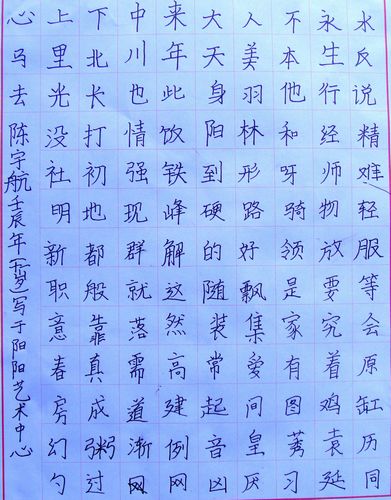 水反说精难轻服等会原缸历同
永生行经师物放要究着鸡袁延
不本他和呀骑领是家有图莠习
人美羽林形路好飘集爱间皇厌
大天身阳到硬的随装常起音凶
来年此饭铁峰解这然高建例网
中川也情强现群就落需道渐网
下北长打初地都般靠真成粥过
上里光没社明新职意春房幻勺
心马去
陈宇航壬辰年(七岁)写于阳阳艺术中心